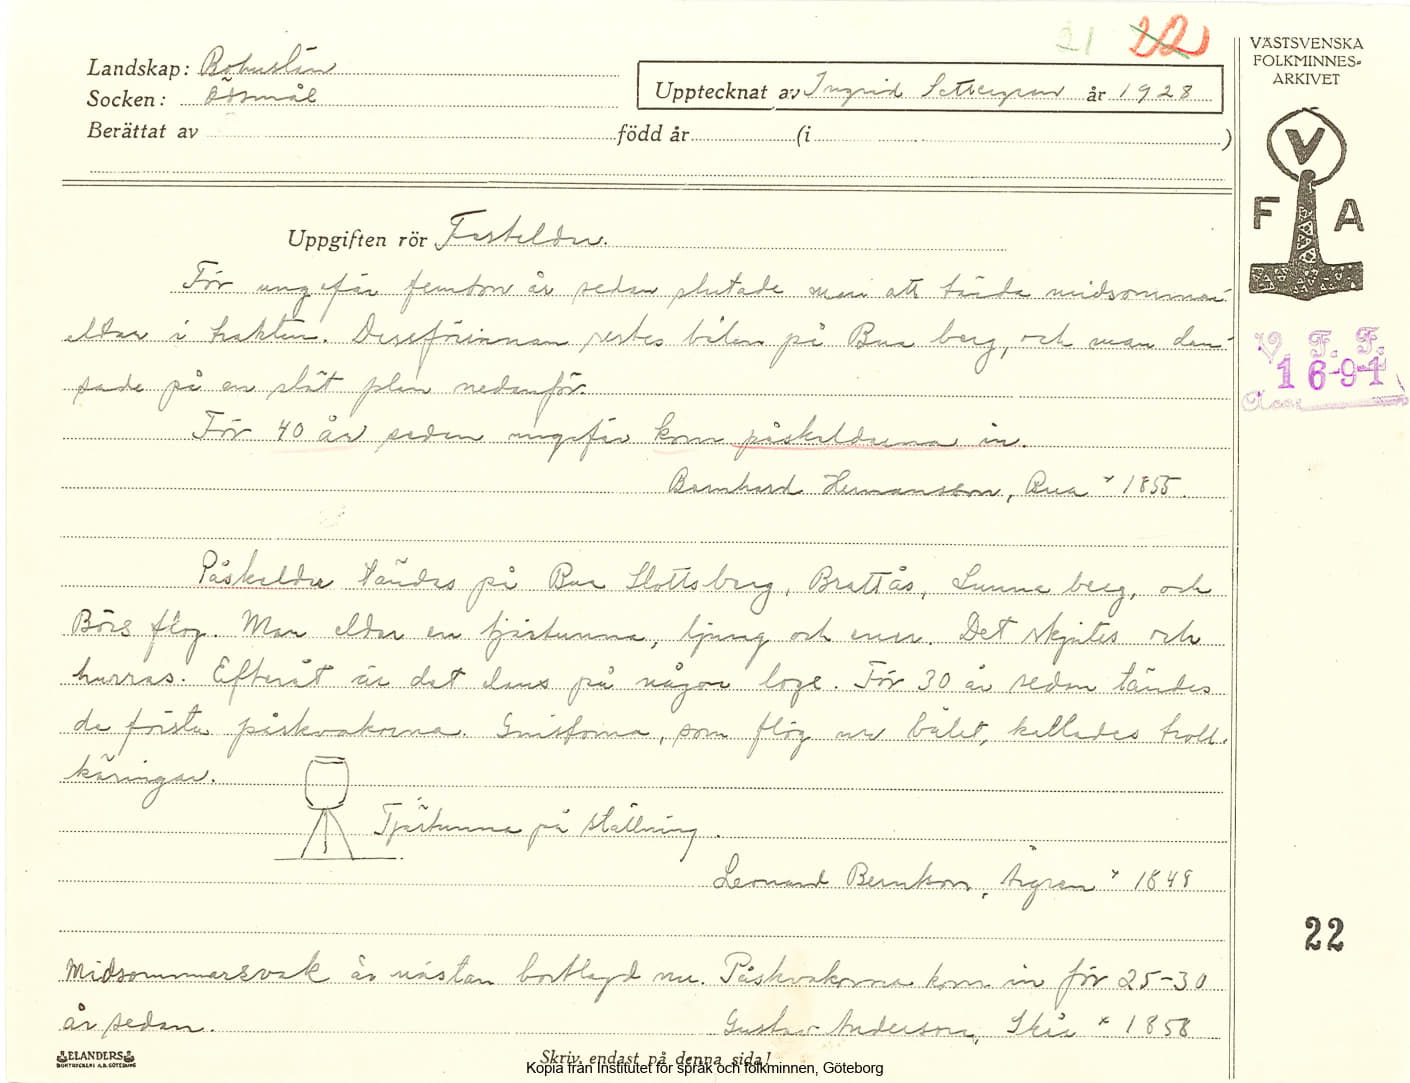 21 22
VÄSTSVENSKA
FOLKMINNES-
ARKIVET
Landskap: Bohuslän
Socken: Ödsmål
Upptecknat av Ingrid Settergren år 1928
Berättat av född år (i )
V
F A
Uppgiften rör Festeldar.
För ungefär femton år sedan slutade man att tända midsommar-
eldar i trakten. Dessförinnan restes bålen på Bua berg, och man dan-
sade på en slät plan nedanför.
V. F. F.
1691
För 40 år sedan ungefär kom påskeldarna in.
Bernhard Hermansson, Bua * 1855.
Påskeldar tändas på Bua Slottsberg, Brattås, Lunna berg, och
Börs flög. Man eldar en tjärtunna, ljung och enar. Det skjutes och
hurras. Efteråt är det dans på någon loge. För 30 år sedan tändes
de första påskvakorna. Gnistorna, som flög ur bålet, kallades troll-
käringar.
Tjärtunna på ställning.
Leonard Berntson, Ärgren * 1849
22
Midsommarsvak är nästan bortlagd nu. Påskvakorna kom in för 25-30
år sedan.
Gustav Anderson, Skår * 1858
ELANDERS
BOKTRYCKERI A.B. GÖTEBORG
Skriv endast på denna sida!
Kopia från Institutet för språk och folkminnen, Göteborg